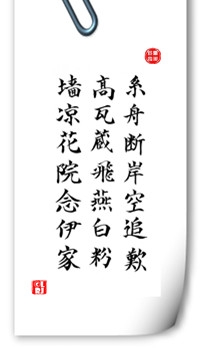 糸舟断岸空追歎
髙瓦蔵飛燕白粉
墙凉花院念伊家